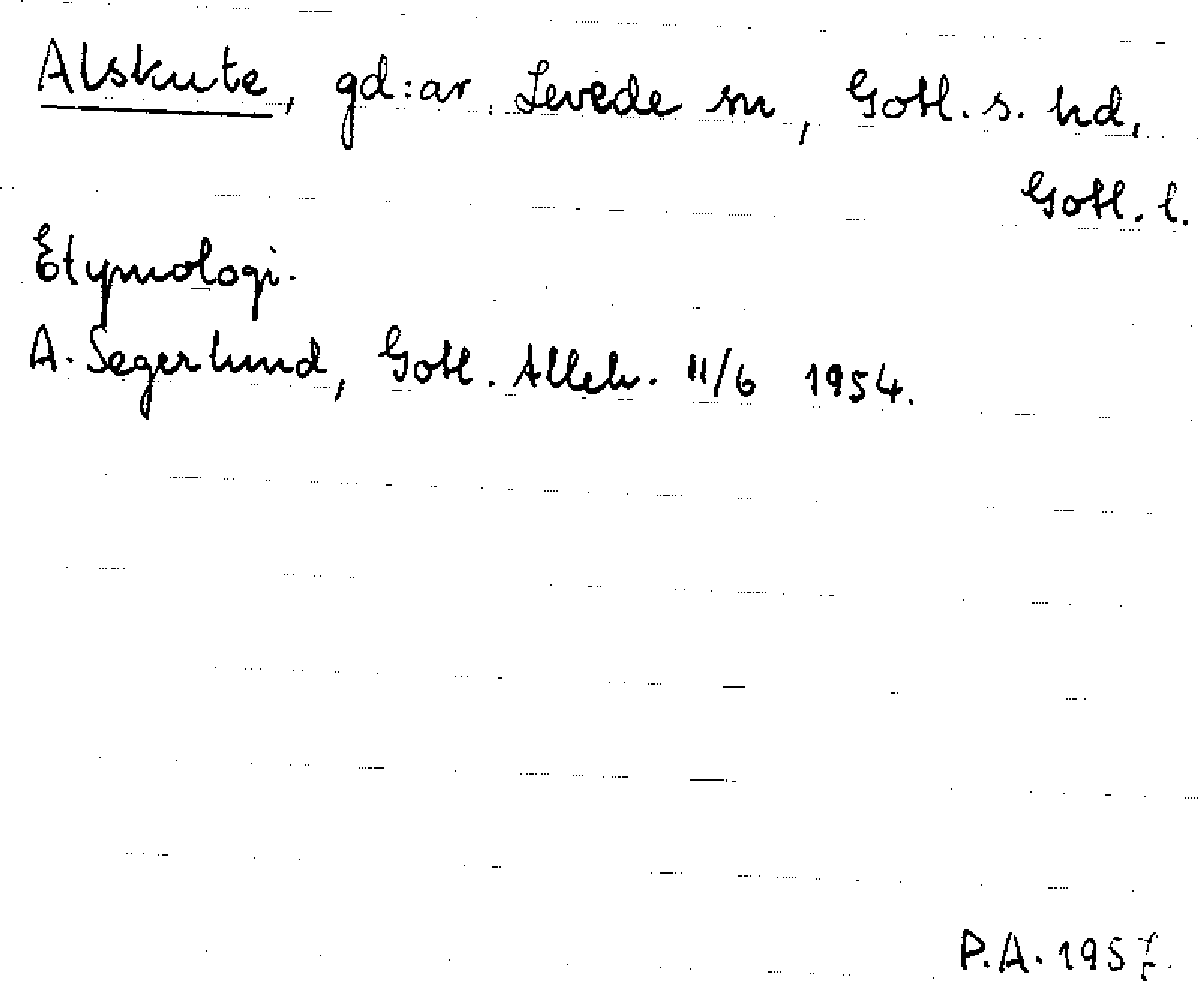 Alskute, gd:ar Levede sn, Gotl. s. hd,
Gotl. l.
Etymologi.
A. Segerlund, Gotl. Alleh. 11/6 1954.
P.A. 1957.